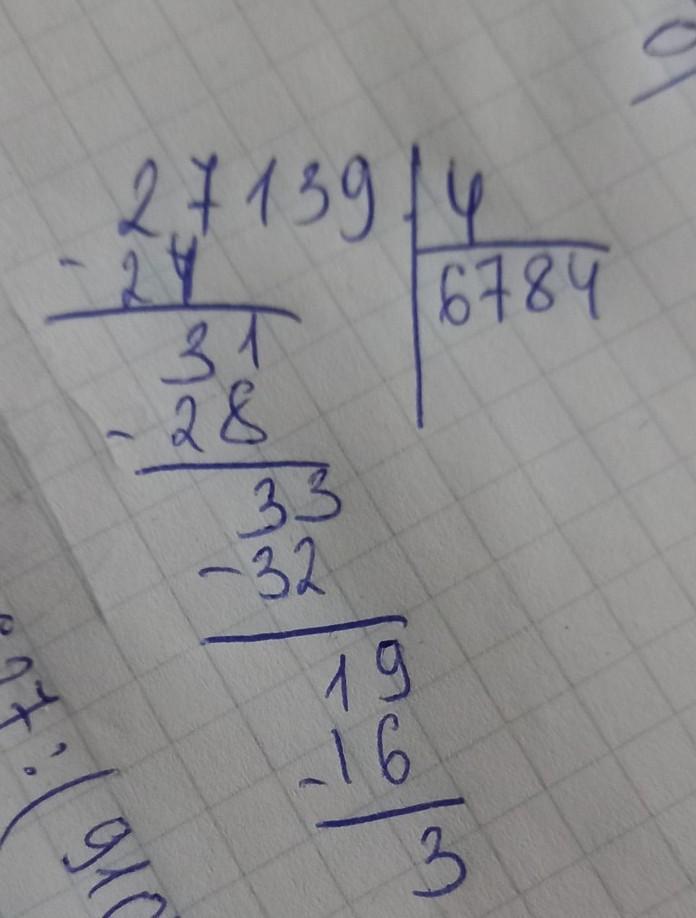 27139 4
- 24 6784
31
- 28
33
- 32
19
- 16
3
7:(910